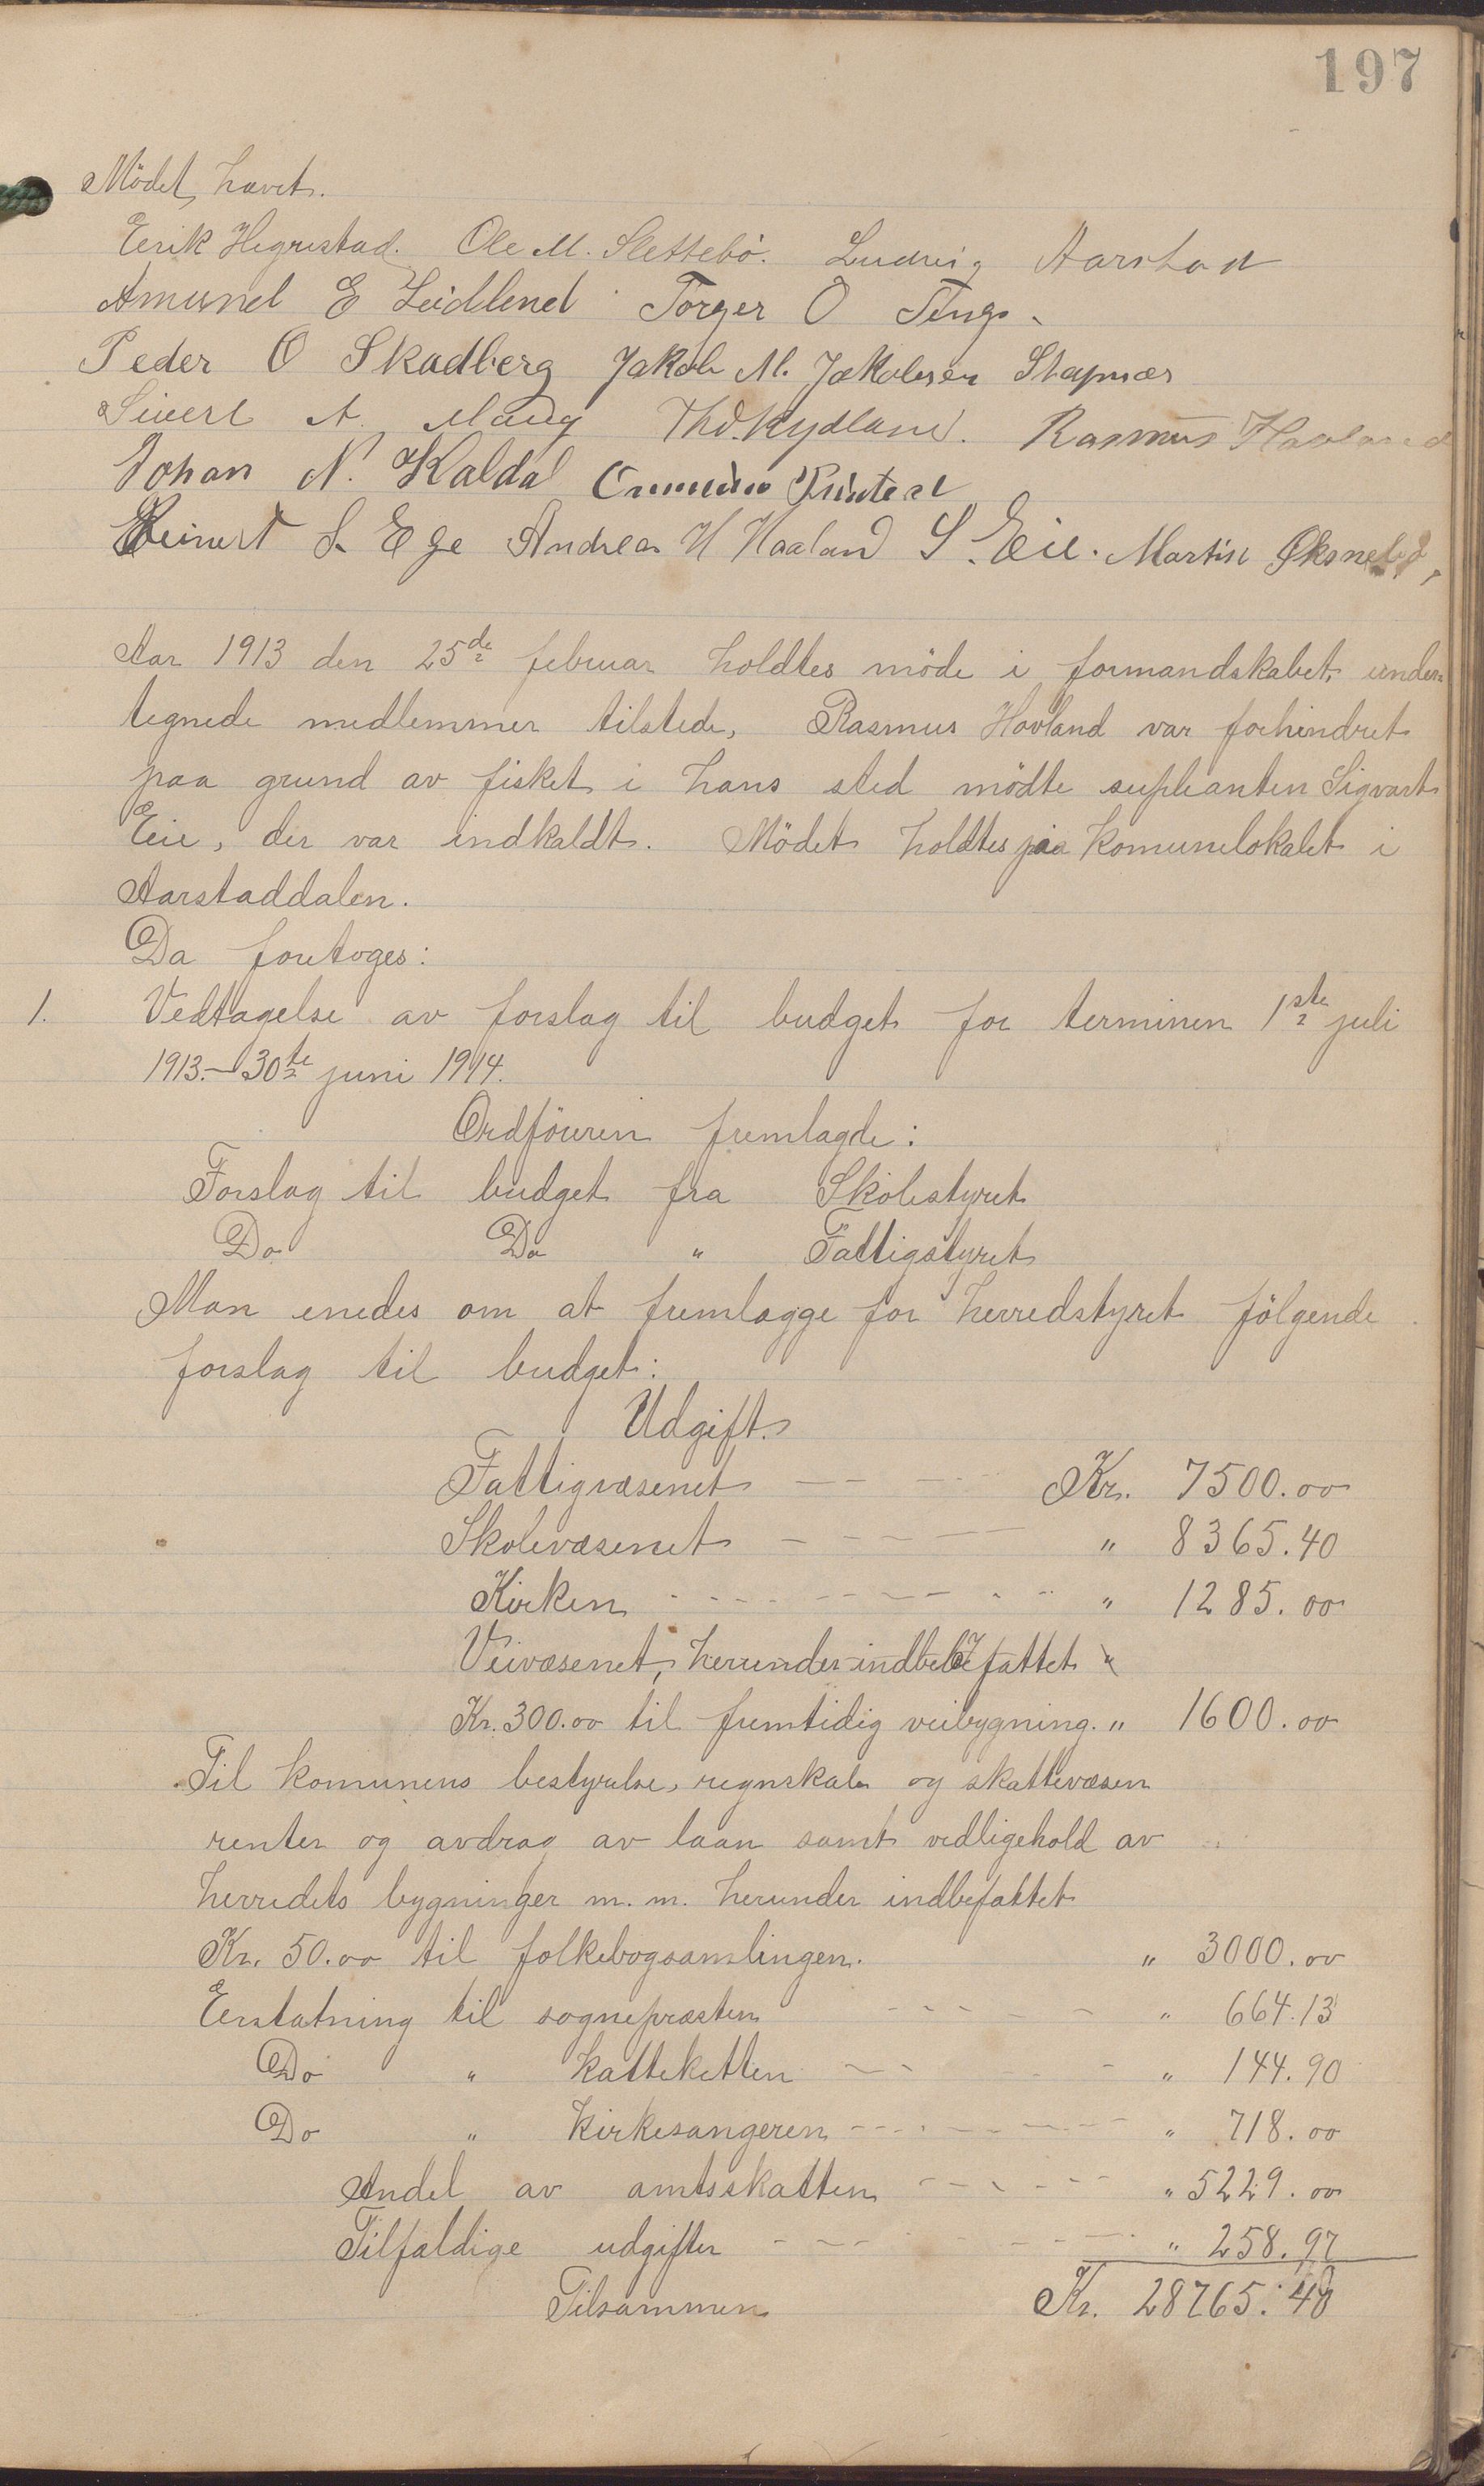 197
Mödet hævet.
Eerik Hegrestad. Ole M. Slettebö. Ludvig Aarstad
Amund E Leidlend Torger O Tengs.
Peder O Skadberg Jakob M. Jakobsen Stapnæs
Sivert A. Maug Thd. Rydland. Rasmus Havland
Johan N. Kaldal
Reinert S. Ege Andreas H Haaland S. Eie. Martin Öksneld,
Aar 1913 den 25de februar holdtes möde i formandskabet, under-
tegnede medlemmer tilstede, Rasmus Hovland var forhindret
paa grund av fisket i hans sted mödte supleanten Sigvart
Eie, der var indkaldt. Mödet holdtes paa komunelokalet i
Aarstaddalen.
Da foretoges:
1. Vedtagelse av forslag til budget for terminen 1ste juli
1913.–30te juni 1914.
Ordföreren fremlagde:
Forslag til budget fra Skolestyret
Do Do " Fattigstyret
Man enedes om at fremlægge for herredstyret fölgende
forslag til budget:
Udgift.
Fattigvæsenet Kr. 7500.00
Skolevæsenet " 8365.40
Kirken " 1285.00
Veivæsenet, herunder indbefattet "
Kr. 300.00 til fremtidig veibygning. " 1600.00
Til komunens bestyrelse, regnskab og skattevæsen
renter og avdrag av laan samt vedligehold av
herredets bygninger m.m. herunder indbefattet
Kr. 50.00 til folkebogsamlingen. " 3000.00
Eerstatning til sognepræsten " 664.13
Do " katteketten " 144.90
Do " kirkesangeren " 718.00
Andel av amtsskatten " 5229.00
Tilfældige udgifter " 258.97
Tilsammen Kr. 28765.40